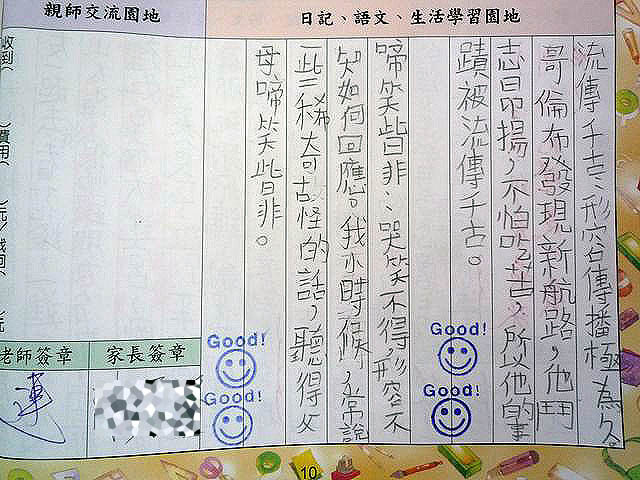 日記、語文、生活學習園地
流傳千古:形容傳播極為久。
哥倫布發現新航路,他鬥
志昂揚,不怕吃苦,所以他的事
蹟被流傳千古。
Good!
Good!
啼笑皆非:哭笑不得,形容不
知如何回應。我小時候,常說
一些稀奇古怪的話,聽得父
母啼笑皆非。
Good!
Good!
親師交流園地
收到( )費用( )元
家長簽章
老師簽章
10